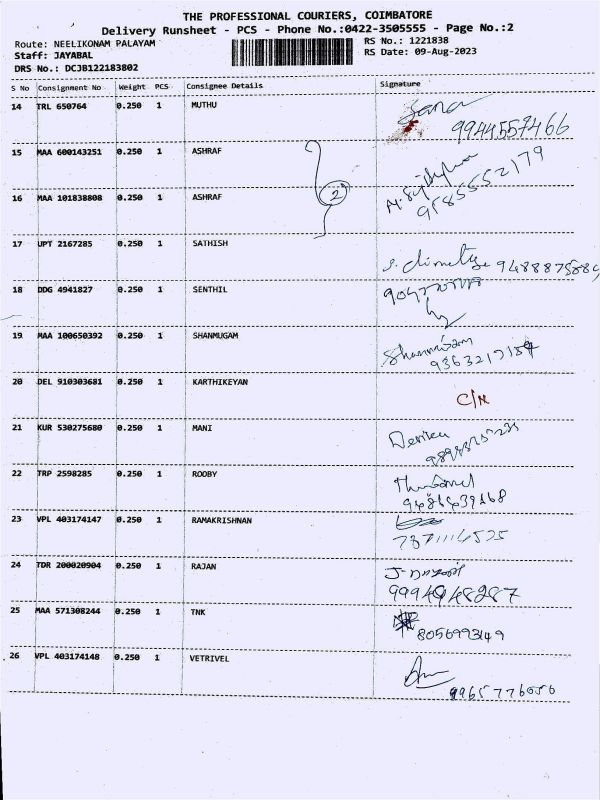 THE PROFESSIONAL COURIERS, COIMBATORE
Delivery Runsheet - PCS - Phone No.:0422-3505555 - Page No.:2
Route: NEELIKONAM PALAYAM RS No.: 1221838
Staff: JAYABAL RS Date: 09-Aug-2023
DRS No.: DCJB122183802
S No Consignment No Weight PCS Consignee Details Signature
14 TRL 650764 0.250 1 MUTHU Sana
9944557466
15 MAA 600143251 0.250 1 ASHRAF
16 MAA 101838808 0.250 1 ASHRAF 2 9585552179
17 UPT 2167285 0.250 1 SATHISH
18 DDG 4941827 0.250 1 SENTHIL
19 MAA 100650392 0.250 1 SHANMUGAM Shanmugam
20 DEL 910303681 0.250 1 KARTHIKEYAN C/N
21 KUR 530275680 0.250 1 MANI
22 TRP 2598285 0.250 1 ROOBY
23 VPL 403174147 0.250 1 RAMAKRISHNAN
24 TDR 200020904 0.250 1 RAJAN
9994948287
25 MAA 571308244 0.250 1 TNK
8056993149
26 VPL 403174148 0.250 1 VETRIVEL
9965776056